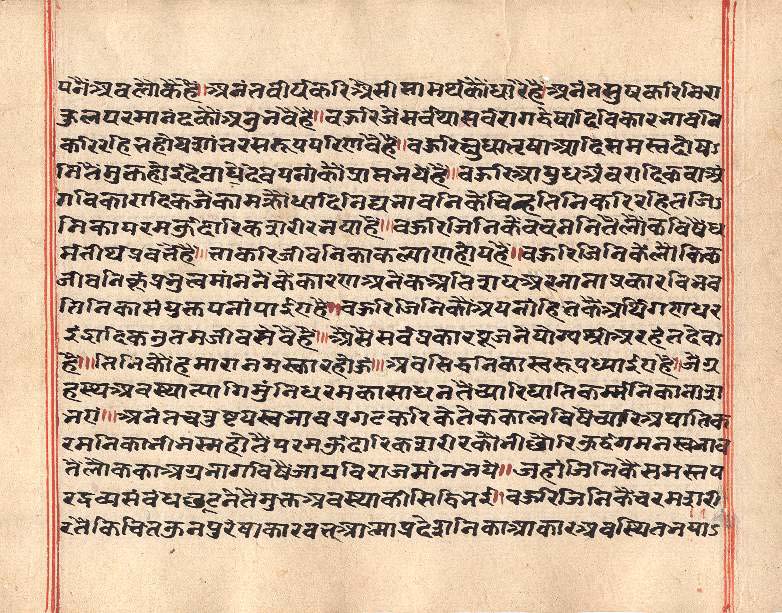 पनैं अवलोकै है॥ अनंतवीर्यकरि अैसी सामर्थ्यकौं धारै है॥ अनंतसुषकरि निरा
कुल परमानंदकौं अनुभवै है॥ बहुरि जे सर्वथा सर्व रागद्वेषादि विकारभावनि
करि रहित होय शांतरसरूप परिणवै है॥ बहुरि क्षुधा तृषा आदि समस्त दोषऽ
नितैं मुक्त होइ देवाधिदेवपनांकौं प्राप्त भये है॥ बहुरि आयुध अंबरादिक वा अं
गविकारादिक जे काम क्रोधादि निंद्यभावनिके चिह्न तिनिकरि रहित जिऽ
निका परम ऊदारिक शरीर भया है॥ बहुरि जिनिके वचननितैं लोकविषै ध
र्मतीर्थ प्रवर्तै है॥ ताकरि जीवनिका कल्याण होय है॥ बहुरि जिनिकै लौकिक
जीवनिकूं प्रभुत्व माननैंके कारण अनेक अतिशय अर नाना प्रकार विभव
तिनिका संयुक्तपनां पाईए है॥ बहुरि जिनिकौं अपनां हितकै अर्थि गणधर
इंद्रादिक उतम जीव सेवै है॥ अैसैं सर्व प्रकार पूजनैयोग्य श्री अरहंतदेव
है॥ तिनिकौं हमारा नमस्कार होऊ॥ अब सिद्धनिका स्वरूप ध्याईए है॥ जे गृ
हस्थ अवस्था त्यागि मुनिधरम का साधनतैं च्यारि घातिकर्मनिका नाश
भएं॥ अनंतचतुष्टय स्वभाव प्रगट करि केतेक काल विषै च्यारि अघातिक
रमनिका भी भस्म होतैं परम ऊदारिक शरीरकौं भी छोरि ऊर्द्धगमन स्वभाव
तैं लोकका अग्रभागविषै जाय विराजमांन भये॥ जहां जिनिकै समस्त प
रद्रव्य संबंध छूटनेतैं मुक्त अवस्थाकी सिद्धि भई॥ बहुरि जिनिकै चरम शरी
रतैं किंचित ऊन पुरुषाकारवत् आत्मप्रदेशनिका आकार अवस्थित भयाऽ